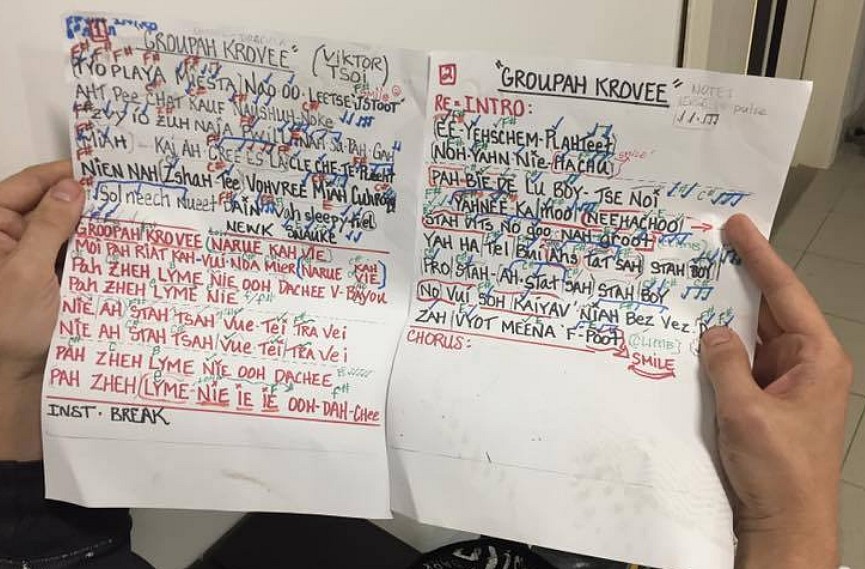 1
"GROUPAH KROVEE"
(VIKTOR)
TSOI
TYO PLAYA MIESTA NAO OO LEETSE JSTOOT"
AHT PEE CHAT KAUF NAUSHUH NOKE
ZVY IO ZUH NAJA PWILL NAH SA-PAH-GAH
KAI AH CREE ES LA CLE CHE-TE
NIEN NAH ZSHAH-TEE VOHVREE MIAH
SOL NEECH NUEET DAIN VAH SLEEPY
NEWK SNAUKE
GROOPAH KROVEE (NARUE KAH VIE)
MOI PAH RIAT KAH-VUI-NOA MIER (NARUE KAH VIE)
PAH ZHEH LYME NIE OOH DACHEE V-BAYOU
PAH ZHEH LYME NIE
NIE AH STAH TSAH VUE-TEI TRA VEI
NIE AH STAH TSAH VUE-TEI TRA VEI
PAH ZHEH LYME NIE OOH DACHEE
PAH ZHEH LYME-NIE IE IE OOH-DAH-CHEE
INST. BREAK
2
"GROUPAH KROVEE"
NOTE:
pulse
RE=INTRO:
EE-YEHSCHEM-PLAHTEET
NOH-YAHN NIE-HACHU
SMILE
PAH-BIE DE LU BOY-TSE NOI
YAHNEE KA MOOI (NEEHACHOO)
STAH VITS NO GOO-NAH GROOT
YAH HA TEL BUI AHS TAT SAH STAH BOY
PRO STAH-AH-STAT SAH STAH BOY
NO VUI SOH KAIYAV NIAH BEZ VEZ
ZAH VYOT MEENA F-POOT
(CLIMB)
SMILE
CHORUS: